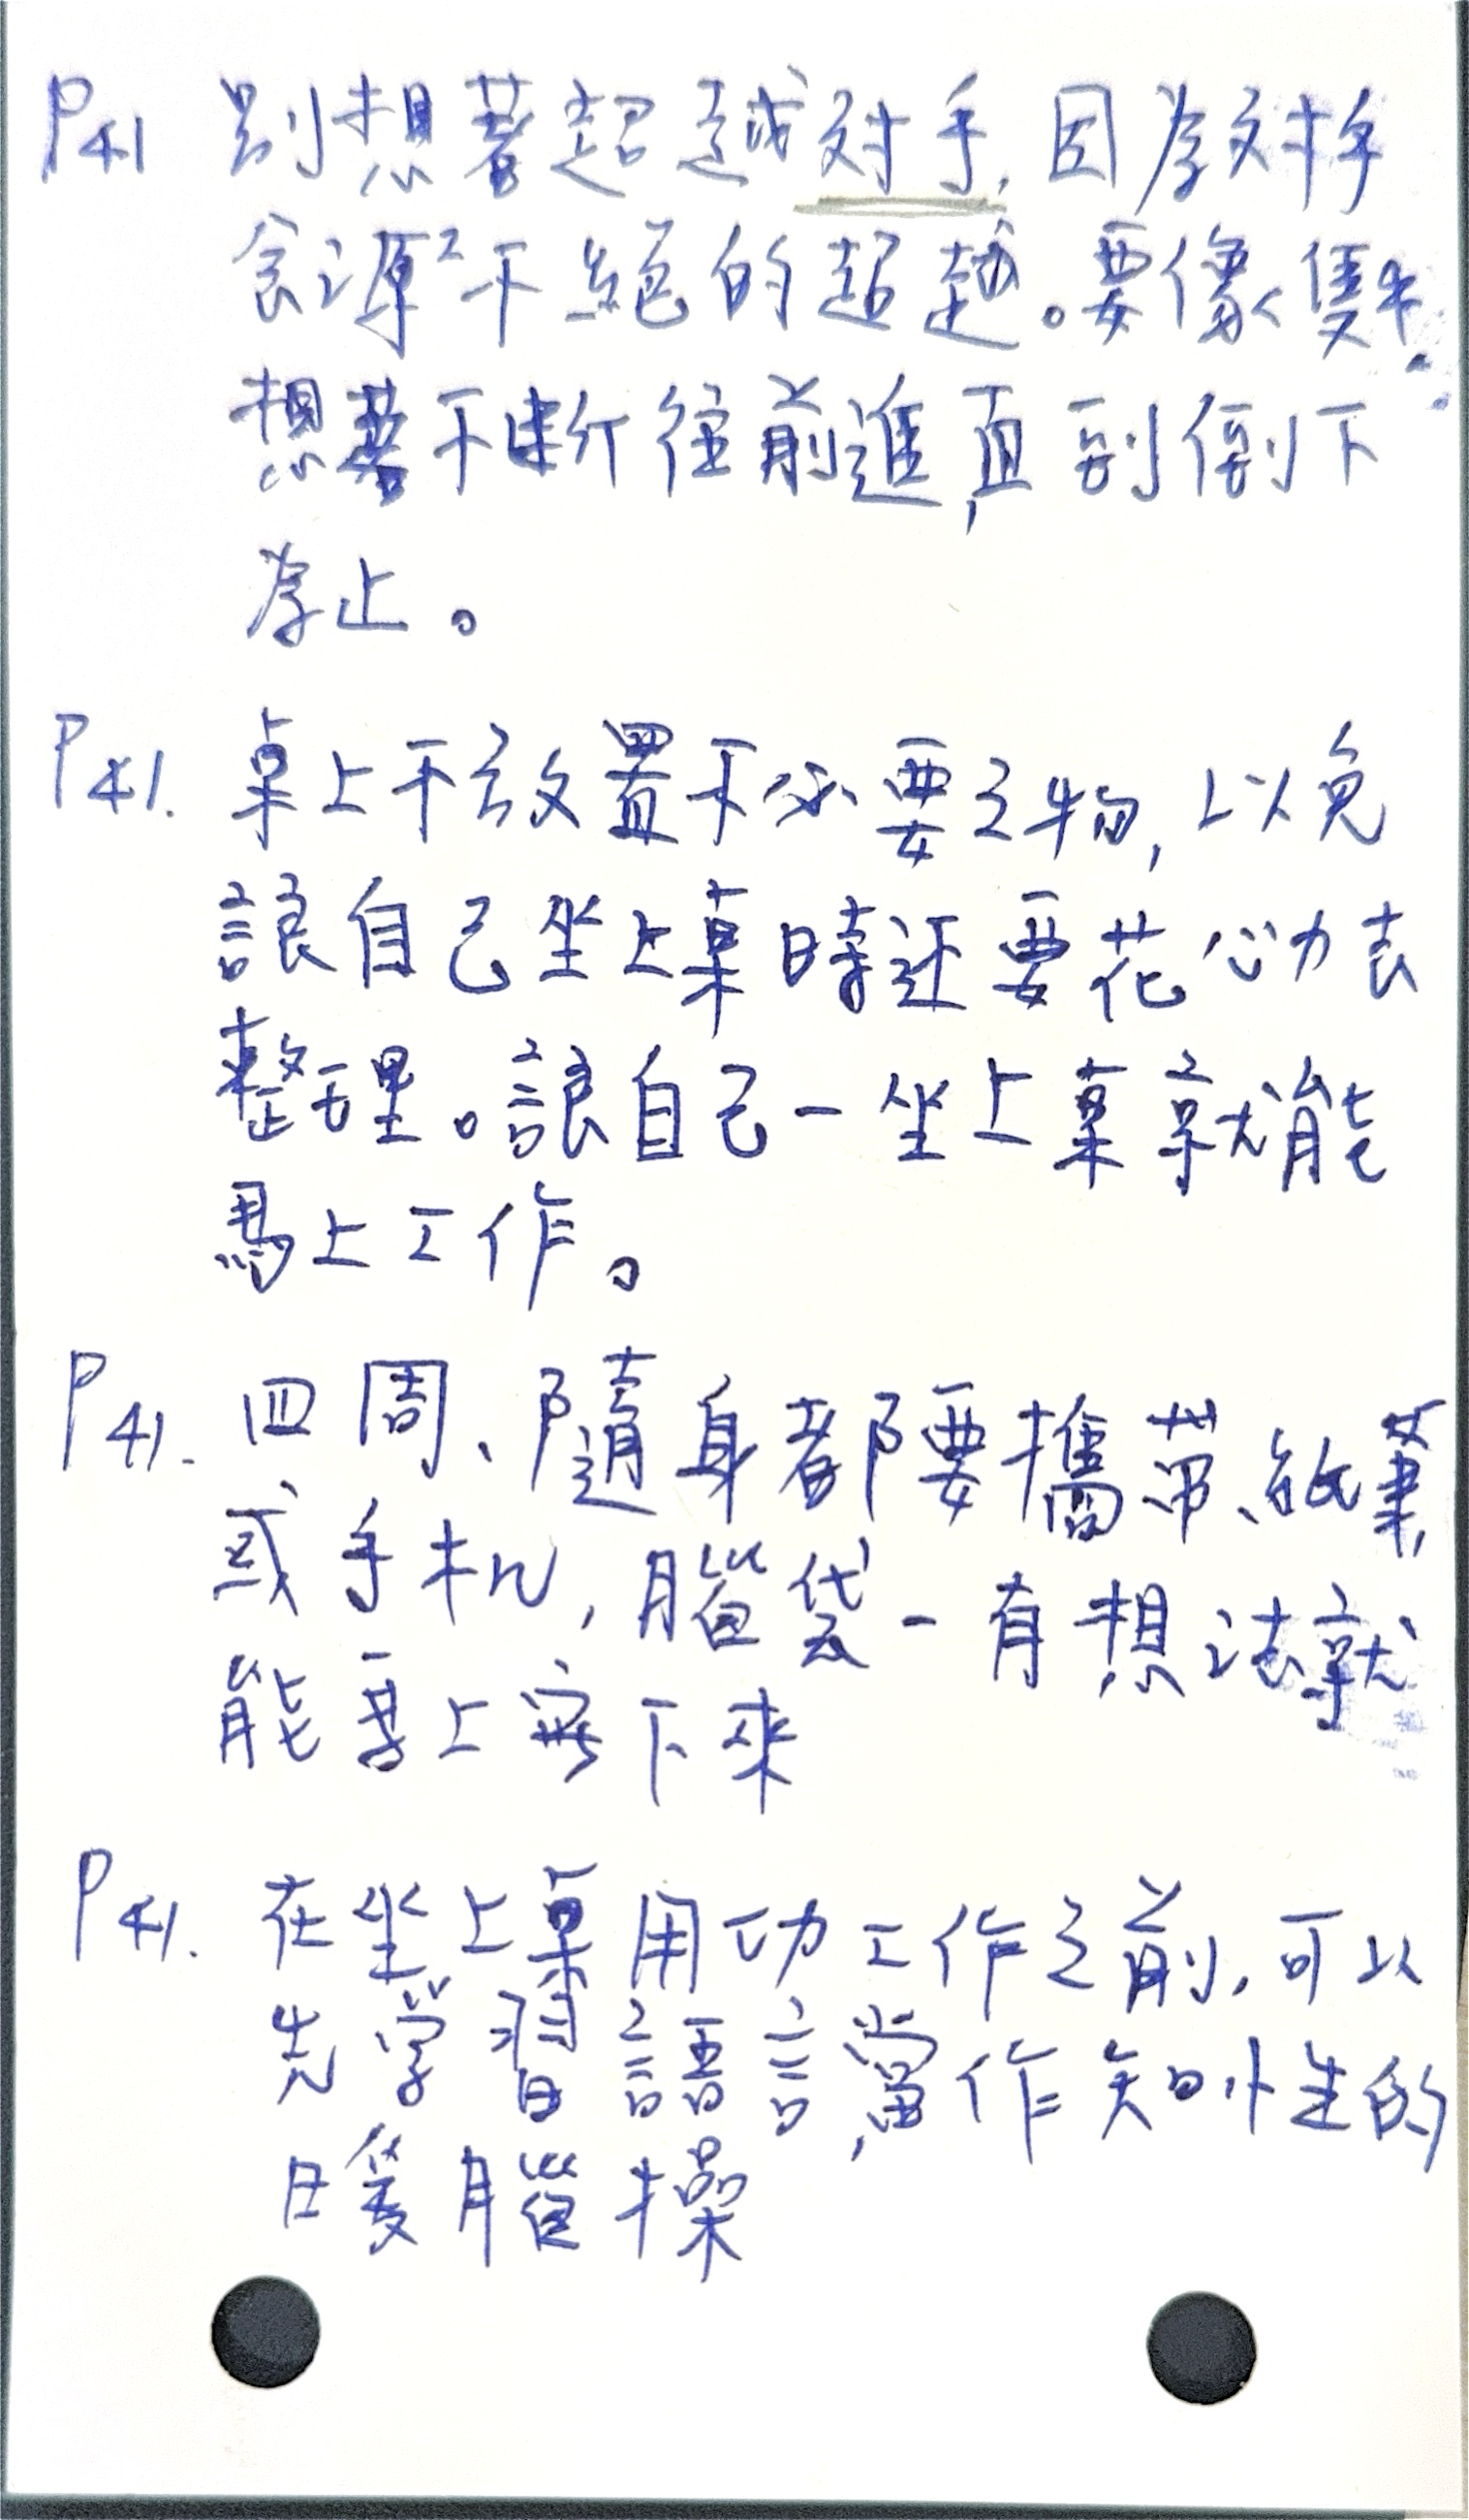 P41 別想著超越对手,因為对手
会源々不絕的超越。要像隻牛,
想著不斷往前進,直到倒下
為止。
P41. 桌上不放置不必要之物,以免
讓自己坐上桌時还要花心力去
整理。讓自己一坐上桌就能
馬上工作。
P41. 四周、隨身都要攜帶紙筆
或手机,腦袋一有想法就
能馬上寫下來
P41. 在坐上桌用功工作之前,可以
先学習語言,當作知性的
暖腦操